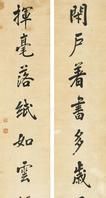 閑戶著書多歲
揮毫落紙如雲